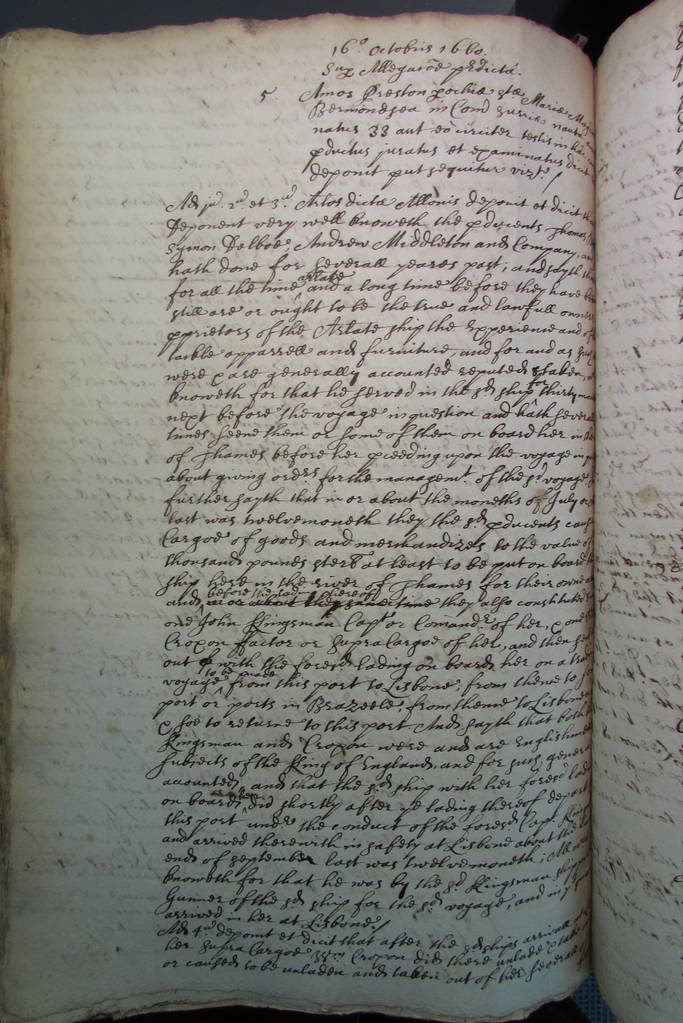 16o. Octobris 1660.
Sup Allegacoe predicta.
5 Amos Preston pochiæ stæ Mariæ
Bermondsea in Com Surriæ nauta
natus 33 aut eo circiter testis in hac
pductus juratus et examinatus
deponit put sequitur vizt./
Ad pm. 2um et 3um Arlos dictæ Allonis deponit et dicit
deponent very well knoweth the pducents Thomas
Symon Delboe, Andrew Middleton and Company, and
hath done for severall yeares past, and sayth
for all the time arlate and a long time before they have
still are or ought to be the true and lawfull owners
pprietors of the Arlate ship the Experience and of
tackle apparrell and furniture, and for and as such
were & are generally accounted reputed & taken,
knoweth for that he served in the sd ship for thirty
next before the voyage in question and hath severall
times seene them or some of them on board her in the
of Thames before her pceeding upon the voyage in
about giving ordrs for the managemt. of the sd voyage
further sayth that in or about the moneths of July or
last was twelvemoneth they the sd pducents
Cargoe of goods and merchandizes to the value of
thousand pounds sterl at least to be put on board
ship here in the river of Thames for their owne
and before the lading thereof they also constituted
one John Kingsman Capt or Comandr. of her, & one
Croxon ffactor or Supra Cargoe of her, and then
out with the foresd lading on board her on a
voyage to be made from this port to Lisbone, from thence to
port or ports in Brazeele, from thence to Lisbone
& soe to returne to this port. And sayth that both
Kingsman and Croxon were and are Englishmen
subjects of the King of England, and for such
accounted, and that the sd ship with her foresd
on board her did shortly after ye lading thereof depart
this port undr. the conduct of the foresd Capt.
and arrived therewith in safety at Lisbone about the
end of September last was twelvemoneth,
knoweth for that he was by the sd Kingsman
Gunner of the sd ship for the sd voyage, and
arrived in her at Lisbone./
Ad 4um deponit et dicit that after the sd ships arrivall
her Supra Cargoe Croxon did there unlade &
or caused to be unladen and taken out of her